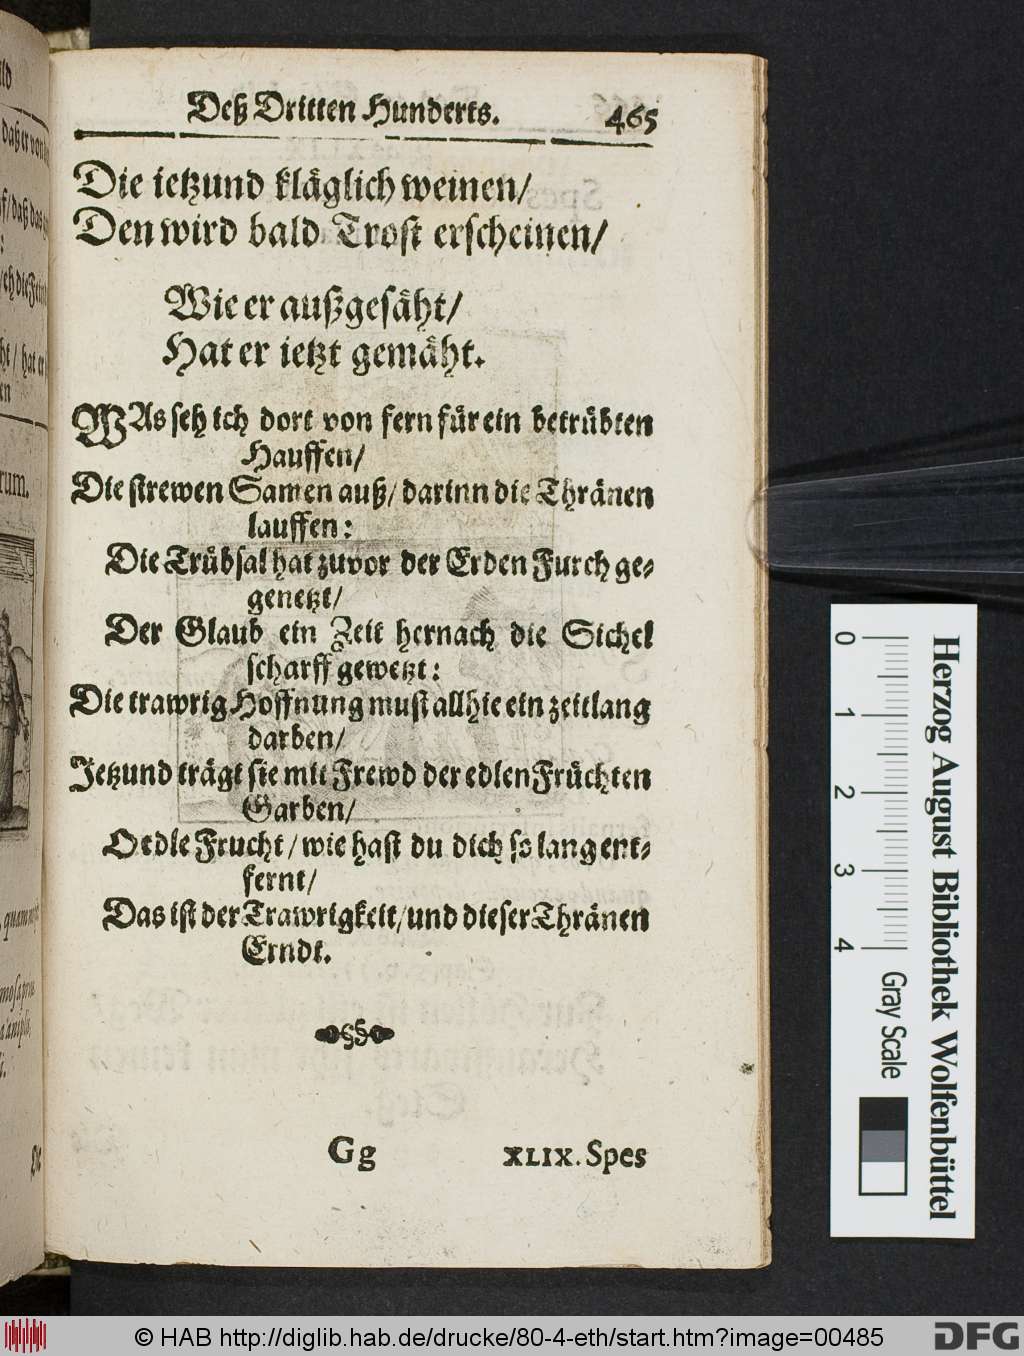 Deß Dritten Hunderts. 465
Die ietzund kläglich weinen/
Den wird bald Trost erscheinen/
Wie er außgesäht/
Hat er ietzt gemäht.
WAs seh ich dort von fern für ein betrübten
Hauffen/
Die strewen Samen auß/ darinn die Thränen
lauffen:
Die Trübsal hat zuvor der Erden Furch ge-
genetzt/
Der Glaub ein Zeit hernach die Sichel
scharff gewetzt:
Die trawrig Hoffnung must allhie ein zeitlang
darben/
Jetzund trägt sie mit Frewd der edlen Früchten
Garben/
O edle Frucht/ wie hast du dich so lang ent-
fernt/
Das ist der Trawrigkeit/ und dieser Thränen
Erndt.
Gg XLIX. Spes
rum.
Herzog August Bibliothek Wolfenbüttel
0 1 2 3 4 Gray Scale
© HAB http://diglib.hab.de/drucke/80-4-eth/start.htm?image=00485
DFG